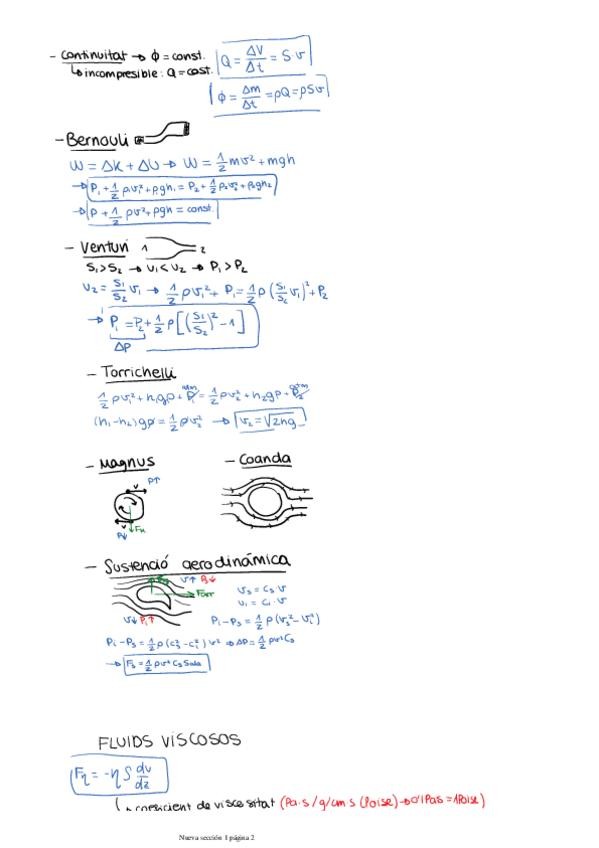 - Continuitat → ϕ = const. Q = ΔV/Δt = S v
↳ incompresible: Q = cost. ϕ = Δm/Δt = ρQ = ρSv
- Bernouli
W = ΔK + ΔU → W = 1/2 mv² + mgh
→ P₁ + 1/2 ρv₁² + ρgh₁ = P₂ + 1/2 ρ₂v₂² + ρ₂gh₂
→ P + 1/2 ρv² + ρgh = const.
- Venturi 1 2
S₁ > S₂ → v₁ < v₂ → P₁ > P₂
v₂ = S₁/S₂ v₁ → 1/2 ρv₁² + P₁ = 1/2 ρ (S₁/S₂ v₁)² + P₂
→ P₁ = P₂ + 1/2 ρ [(S₁/S₂)² - 1]
ΔP
- Torrichelli
1/2 ρv₁² + h₁gρ + P₁ = 1/2 ρv₂² + h₂gρ + P₂
(h₁-h₂)gρ = 1/2 ρv₂² → v₂ = √2hg
- Magnus - Coanda
v P↑
v
P↓ F
- Sustenció aerodinámica
v↑ P↓
v↓ Pi↑
vs = cs v
vi = ci · v
Pi - Ps = 1/2 ρ (vs² - vi²)
Pi - Ps = 1/2 ρ (cs² - ci²) v² ⇒ ΔP = 1/2 ρv² Cs
→ Fs = 1/2 ρv² Cs Sala
FLUIDS VISCOSOS
Fη = -η S dv/dz
↳ coeficient de viscositat (Pa·s / g/cm·s (Poise) → 0'1 Pa·s = 1 Poise)
Nueva sección 1 página 2